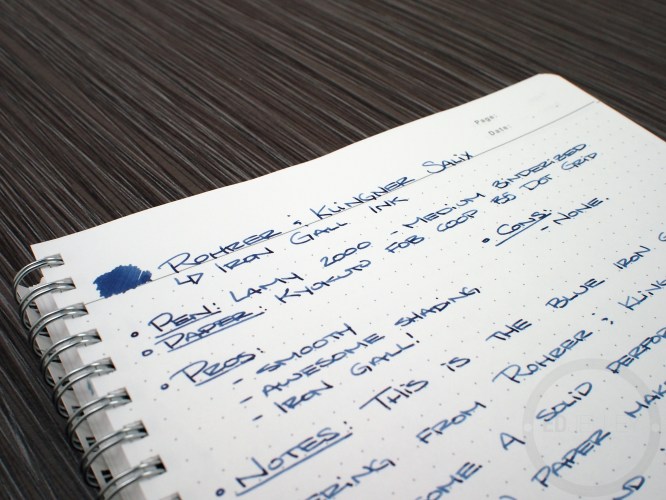 Page:
Date:
ROHRER ; KLINGNER SALIX
↳ IRON GALL INK
• PEN: LAMY 2000 - MEDIUM BINDERIZED
• PAPER: KYOKUTO FOB COOP B5 DOT GRID
• PROS:
- SMOOTH
- AWESOME SHADING
- IRON GALL!
• CONS:
- NONE.
• NOTES: THIS IS THE BLUE IRON G
ERING FROM ROHRER ; KLING
OME A SOLID PERFOR
PAPER MAK